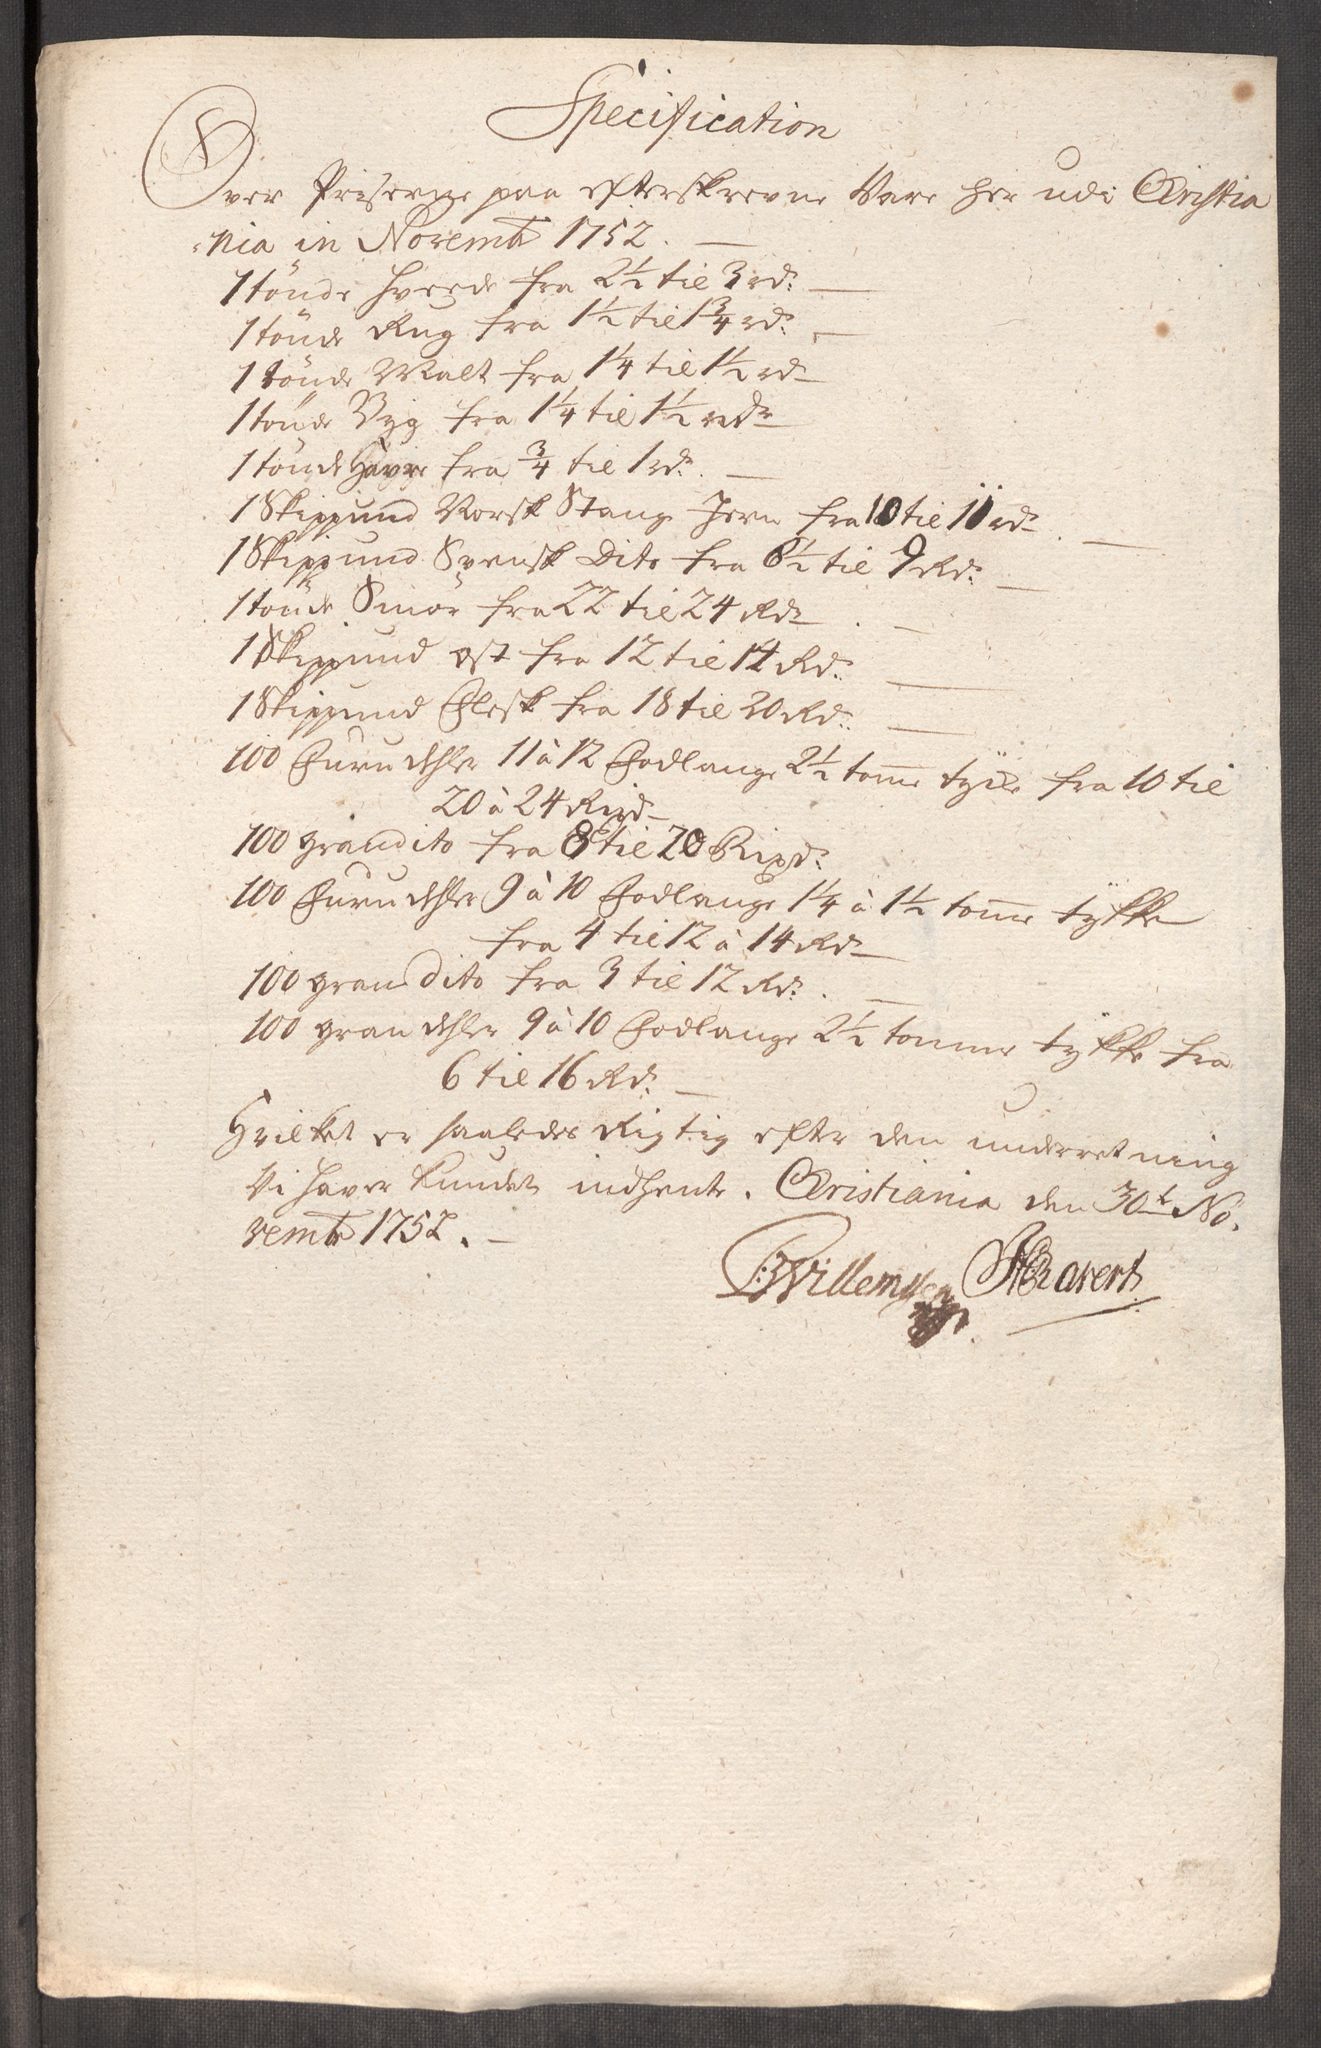 Specification
Over Priserne paa efterskrevne Vare her udi Christia
nia in Novembr 1752.
1 tönde Hvede fra 2½ til 3 rdr.
1 tönde Rug fra 1½ til 1¾ rdr.
1 tönde Malt fra 1¼ til 1½ rdr
1 tönde Byg fra 1¼ til 1½ rdr
1 tönde Havre fra ¾ til 1 rdr.
1 Skippund Norsk Stang Jern fra 10 til 11 rdr
1 Skippund Svensk Dito fra 8½ til 9 Rdr.
1 tönde Smör fra 22 til 24 Rdr
1 Skippund ost fra 12 til 14 Rdr.
1 Skippund Flesk fra 18 til 20 Rdr.
100 Furu dehler 11 à 12 Fodlange 2½ tomme tycke fra 10 til
20 à 24 Rixd
100 gran dito fra 8 til 20 Rixdr.
100 Furu dehler 9 à 10 Fodlange 1¼ à 1½ tomme tykke
fra 4 til 12 à 14 Rdr
100 gran dito fra 3 til 12 Rdr.
100 gran dehler 9 à 10 Fodlange 2½ tomme tykke fra
6 til 16 Rdr.
Hvilket er saaledes Rigtig efter den underretning
Vi haver kundet indhente. Christiania den 30te No,
vembr 1752.
Willemsen